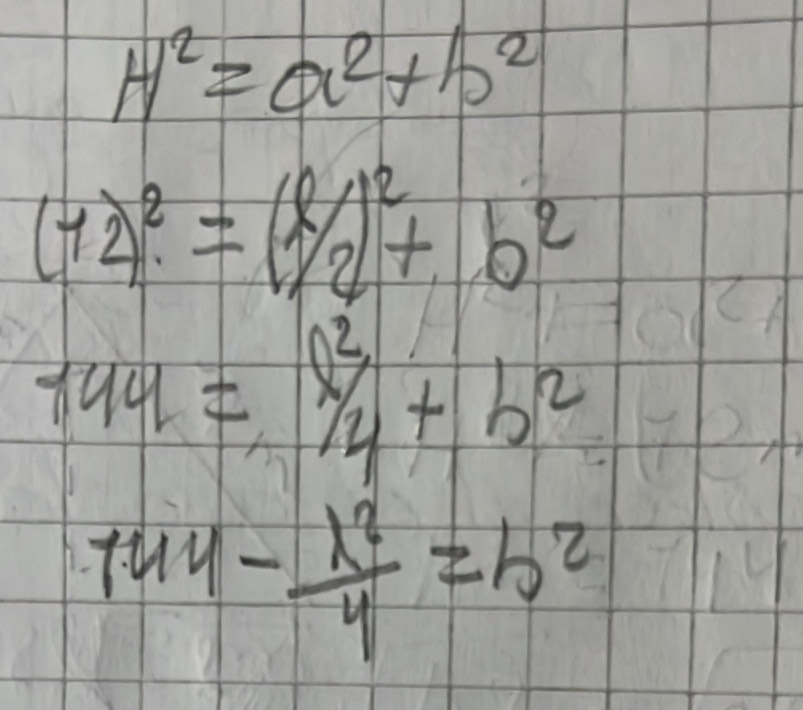 H² = a² + b²
(12)² = (l/2)² + b²
144 = l²/4 + b²
144 - l²/4 = b²